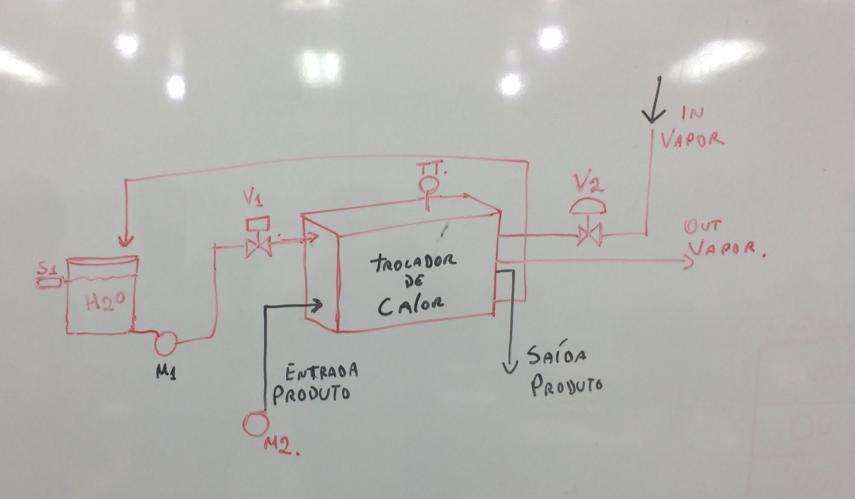 IN
VAPOR
TT.
V2
V1
OUT
VAPOR.
S1
H2O
TROCADOR
DE
CALOR
M1
ENTRADA
PRODUTO
SAÍDA
PRODUTO
M2.